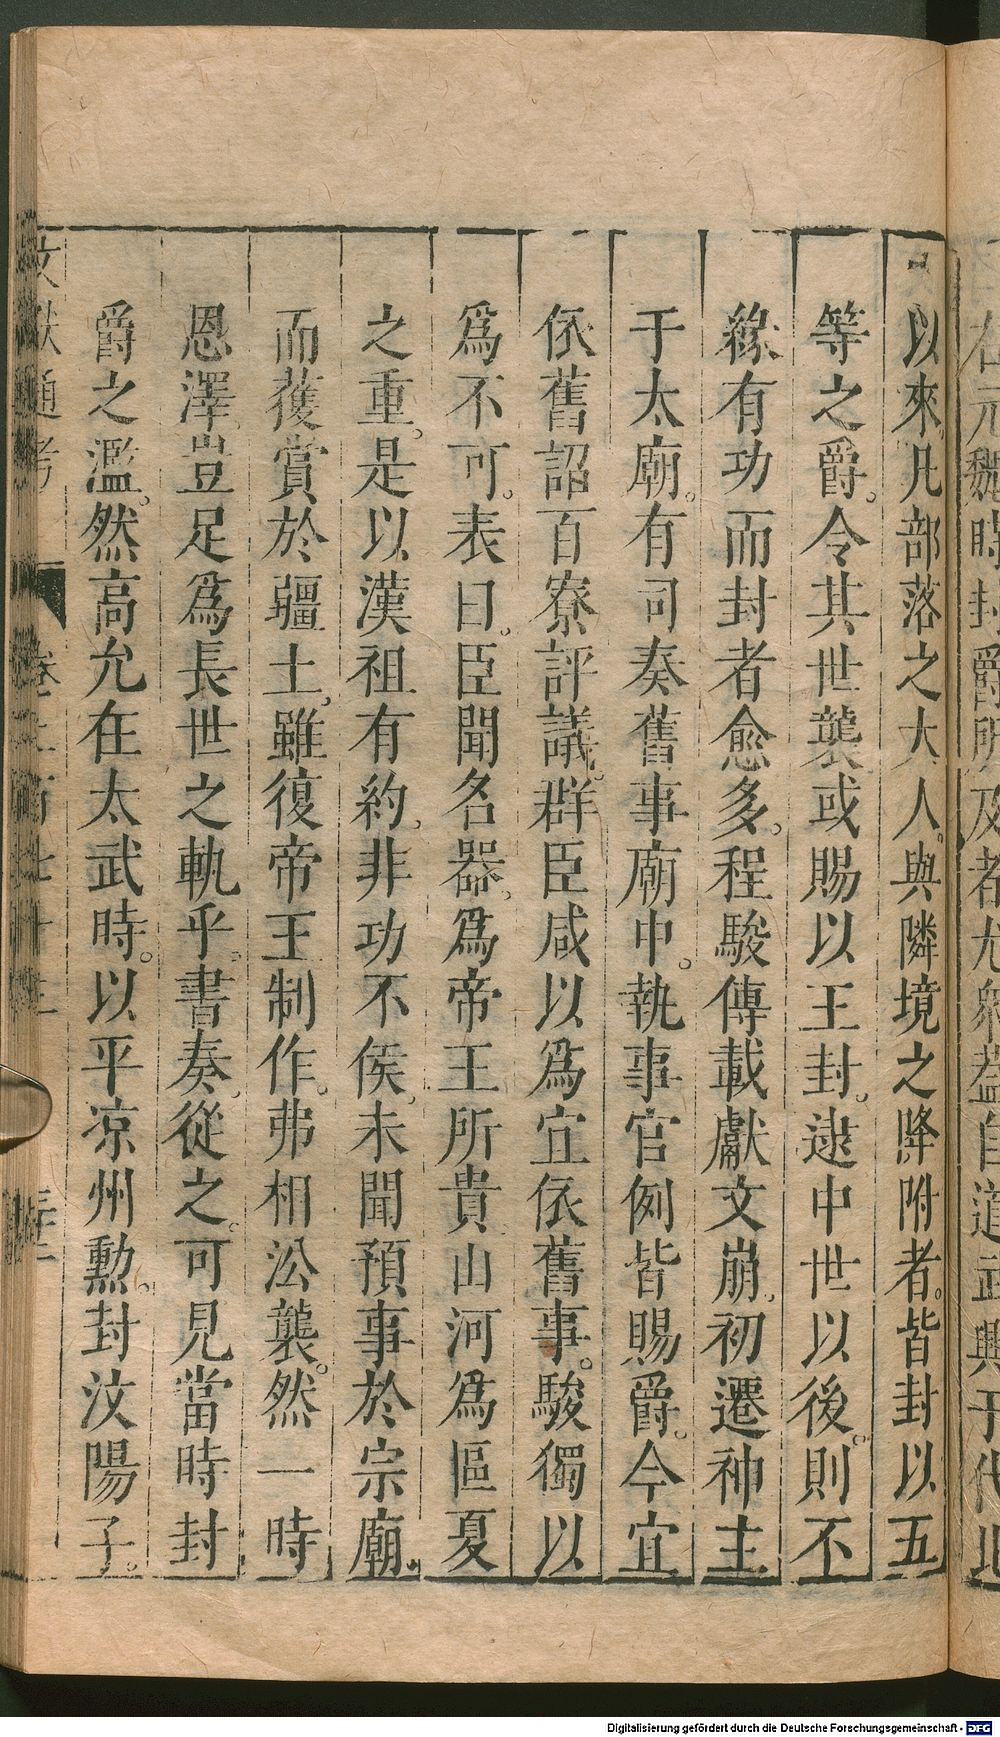 右元魏時封爵所及者尤衆蓋自道武興于代北
以來凡部落之大人與隣境之降附者皆封以五
等之爵令其世襲或賜以王封逮中世以後則不
緣有功而封者愈多程駿傳載獻文崩初遷神主
于太廟有司奏舊事廟中執事官例皆賜爵今宜
依舊詔百寮評議群臣咸以爲宜依舊事駿獨以
爲不可表曰臣聞名器爲帝王所貴山河爲區夏
之重是以漢祖有約非功不侯未聞預事於宗廟
而獲賞於疆土雖復帝王制作弗相沿襲然一時
恩澤豈足爲長世之軌乎書奏從之可見當時封
爵之濫然高允在太武時以平凉州勲封汶陽子
文獻通考
Digitalisierung gefördert durch die Deutsche Forschungsgemeinschaft - DFG